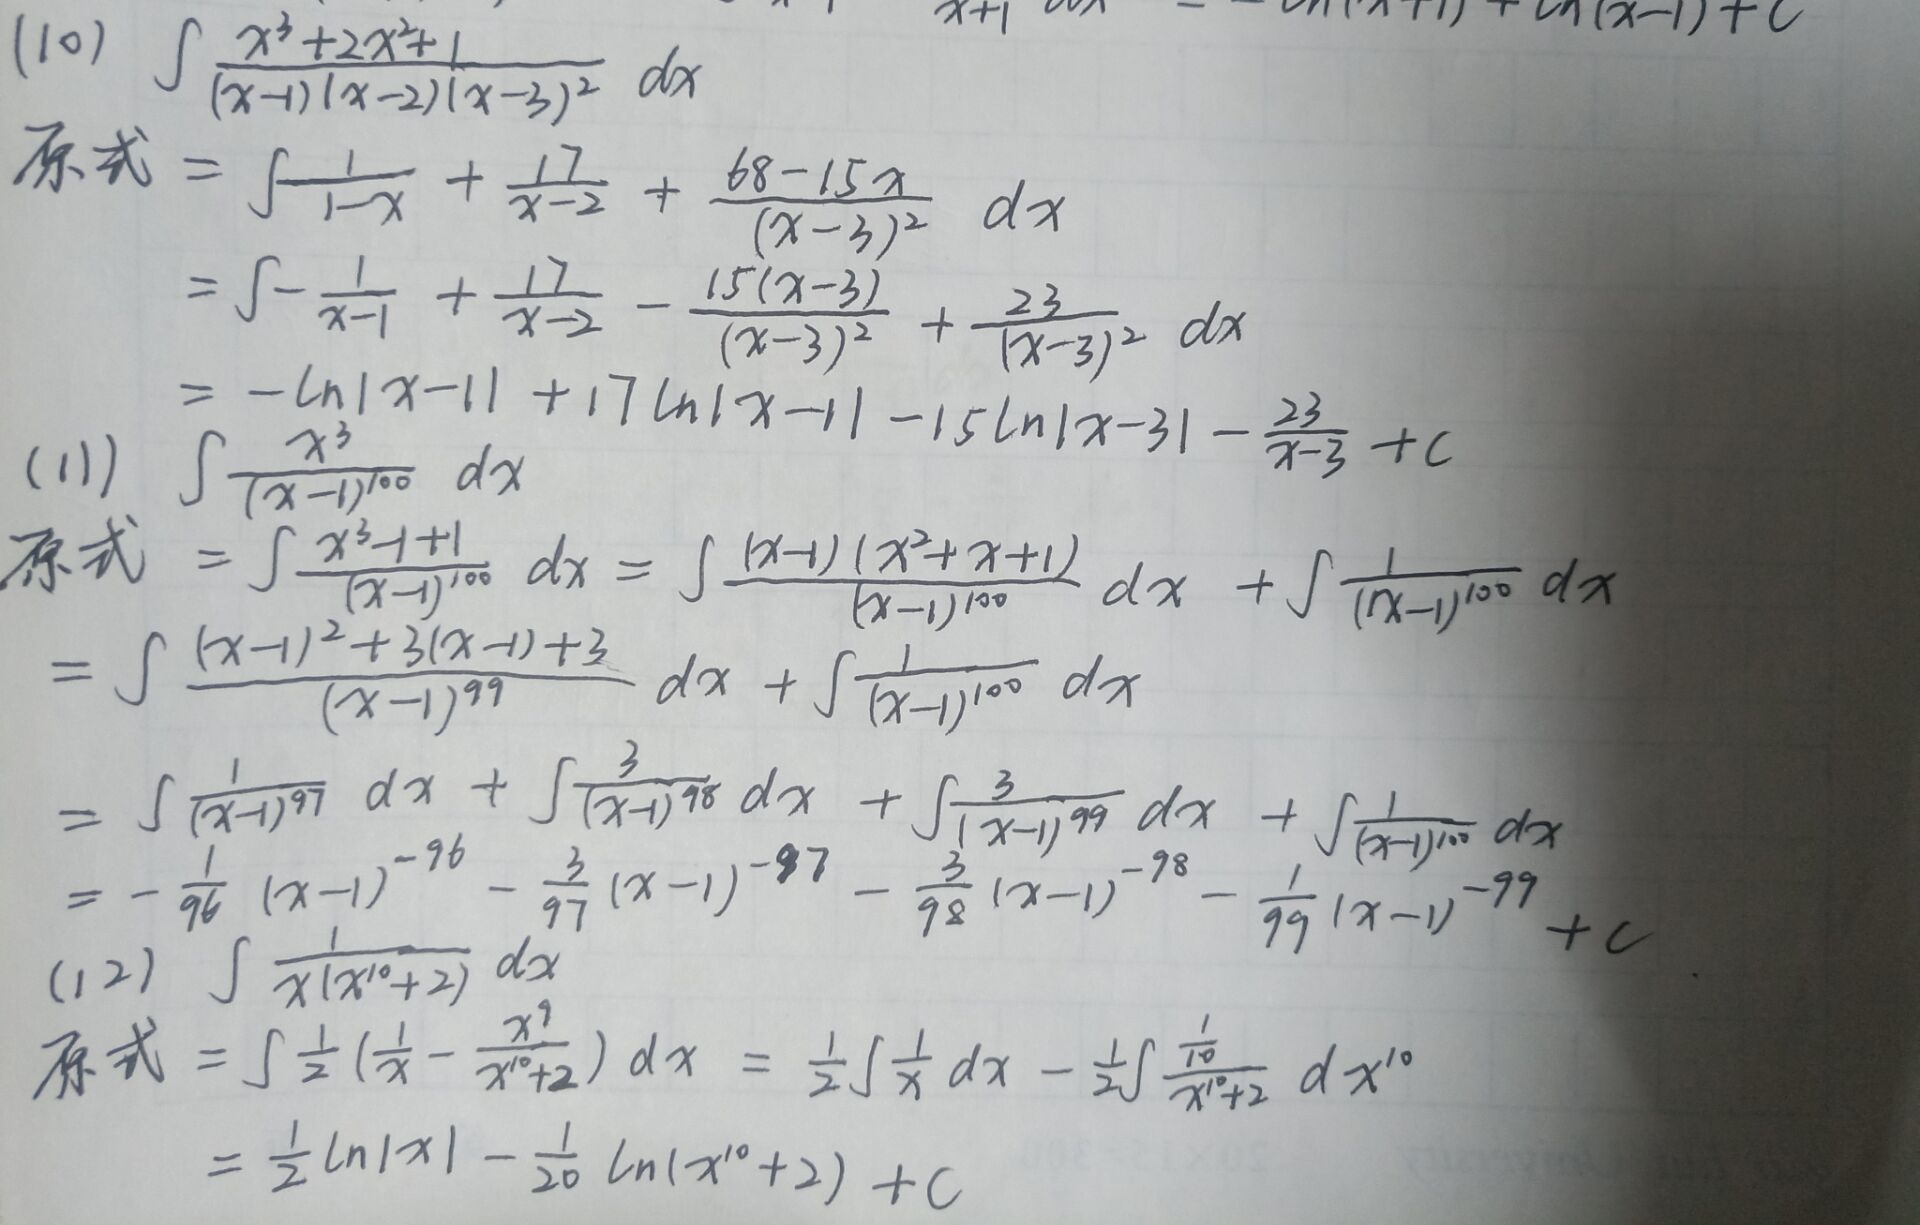 x+1 dx = -ln(x+1) + ln(x-1) + C
(10) ∫ (x³+2x²+1)/((x-1)(x-2)(x-3)²) dx
原式 = ∫ 1/(1-x) + 17/(x-2) + (68-15x)/(x-3)² dx
= ∫ - 1/(x-1) + 17/(x-2) - 15(x-3)/(x-3)² + 23/(x-3)² dx
= -ln|x-1| + 17ln|x-1| - 15ln|x-3| - 23/(x-3) + C
(11) ∫ x³/(x-1)¹⁰⁰ dx
原式 = ∫ (x³-1+1)/(x-1)¹⁰⁰ dx = ∫ (x-1)(x²+x+1)/(x-1)¹⁰⁰ dx + ∫ 1/(x-1)¹⁰⁰ dx
= ∫ ((x-1)²+3(x-1)+3)/(x-1)⁹⁹ dx + ∫ 1/(x-1)¹⁰⁰ dx
= ∫ 1/(x-1)⁹⁷ dx + ∫ 3/(x-1)⁹⁸ dx + ∫ 3/(x-1)⁹⁹ dx + ∫ 1/(x-1)¹⁰⁰ dx
= - 1/96 (x-1)⁻⁹⁶ - 3/97 (x-1)⁻⁹⁷ - 3/98 (x-1)⁻⁹⁸ - 1/99 (x-1)⁻⁹⁹ + C
(12) ∫ 1/(x(x¹⁰+2)) dx
原式 = ∫ 1/2 (1/x - x⁹/(x¹⁰+2)) dx = 1/2 ∫ 1/x dx - 1/2 ∫ (1/10)/(x¹⁰+2) dx¹⁰
= 1/2 ln|x| - 1/20 ln(x¹⁰+2) + C